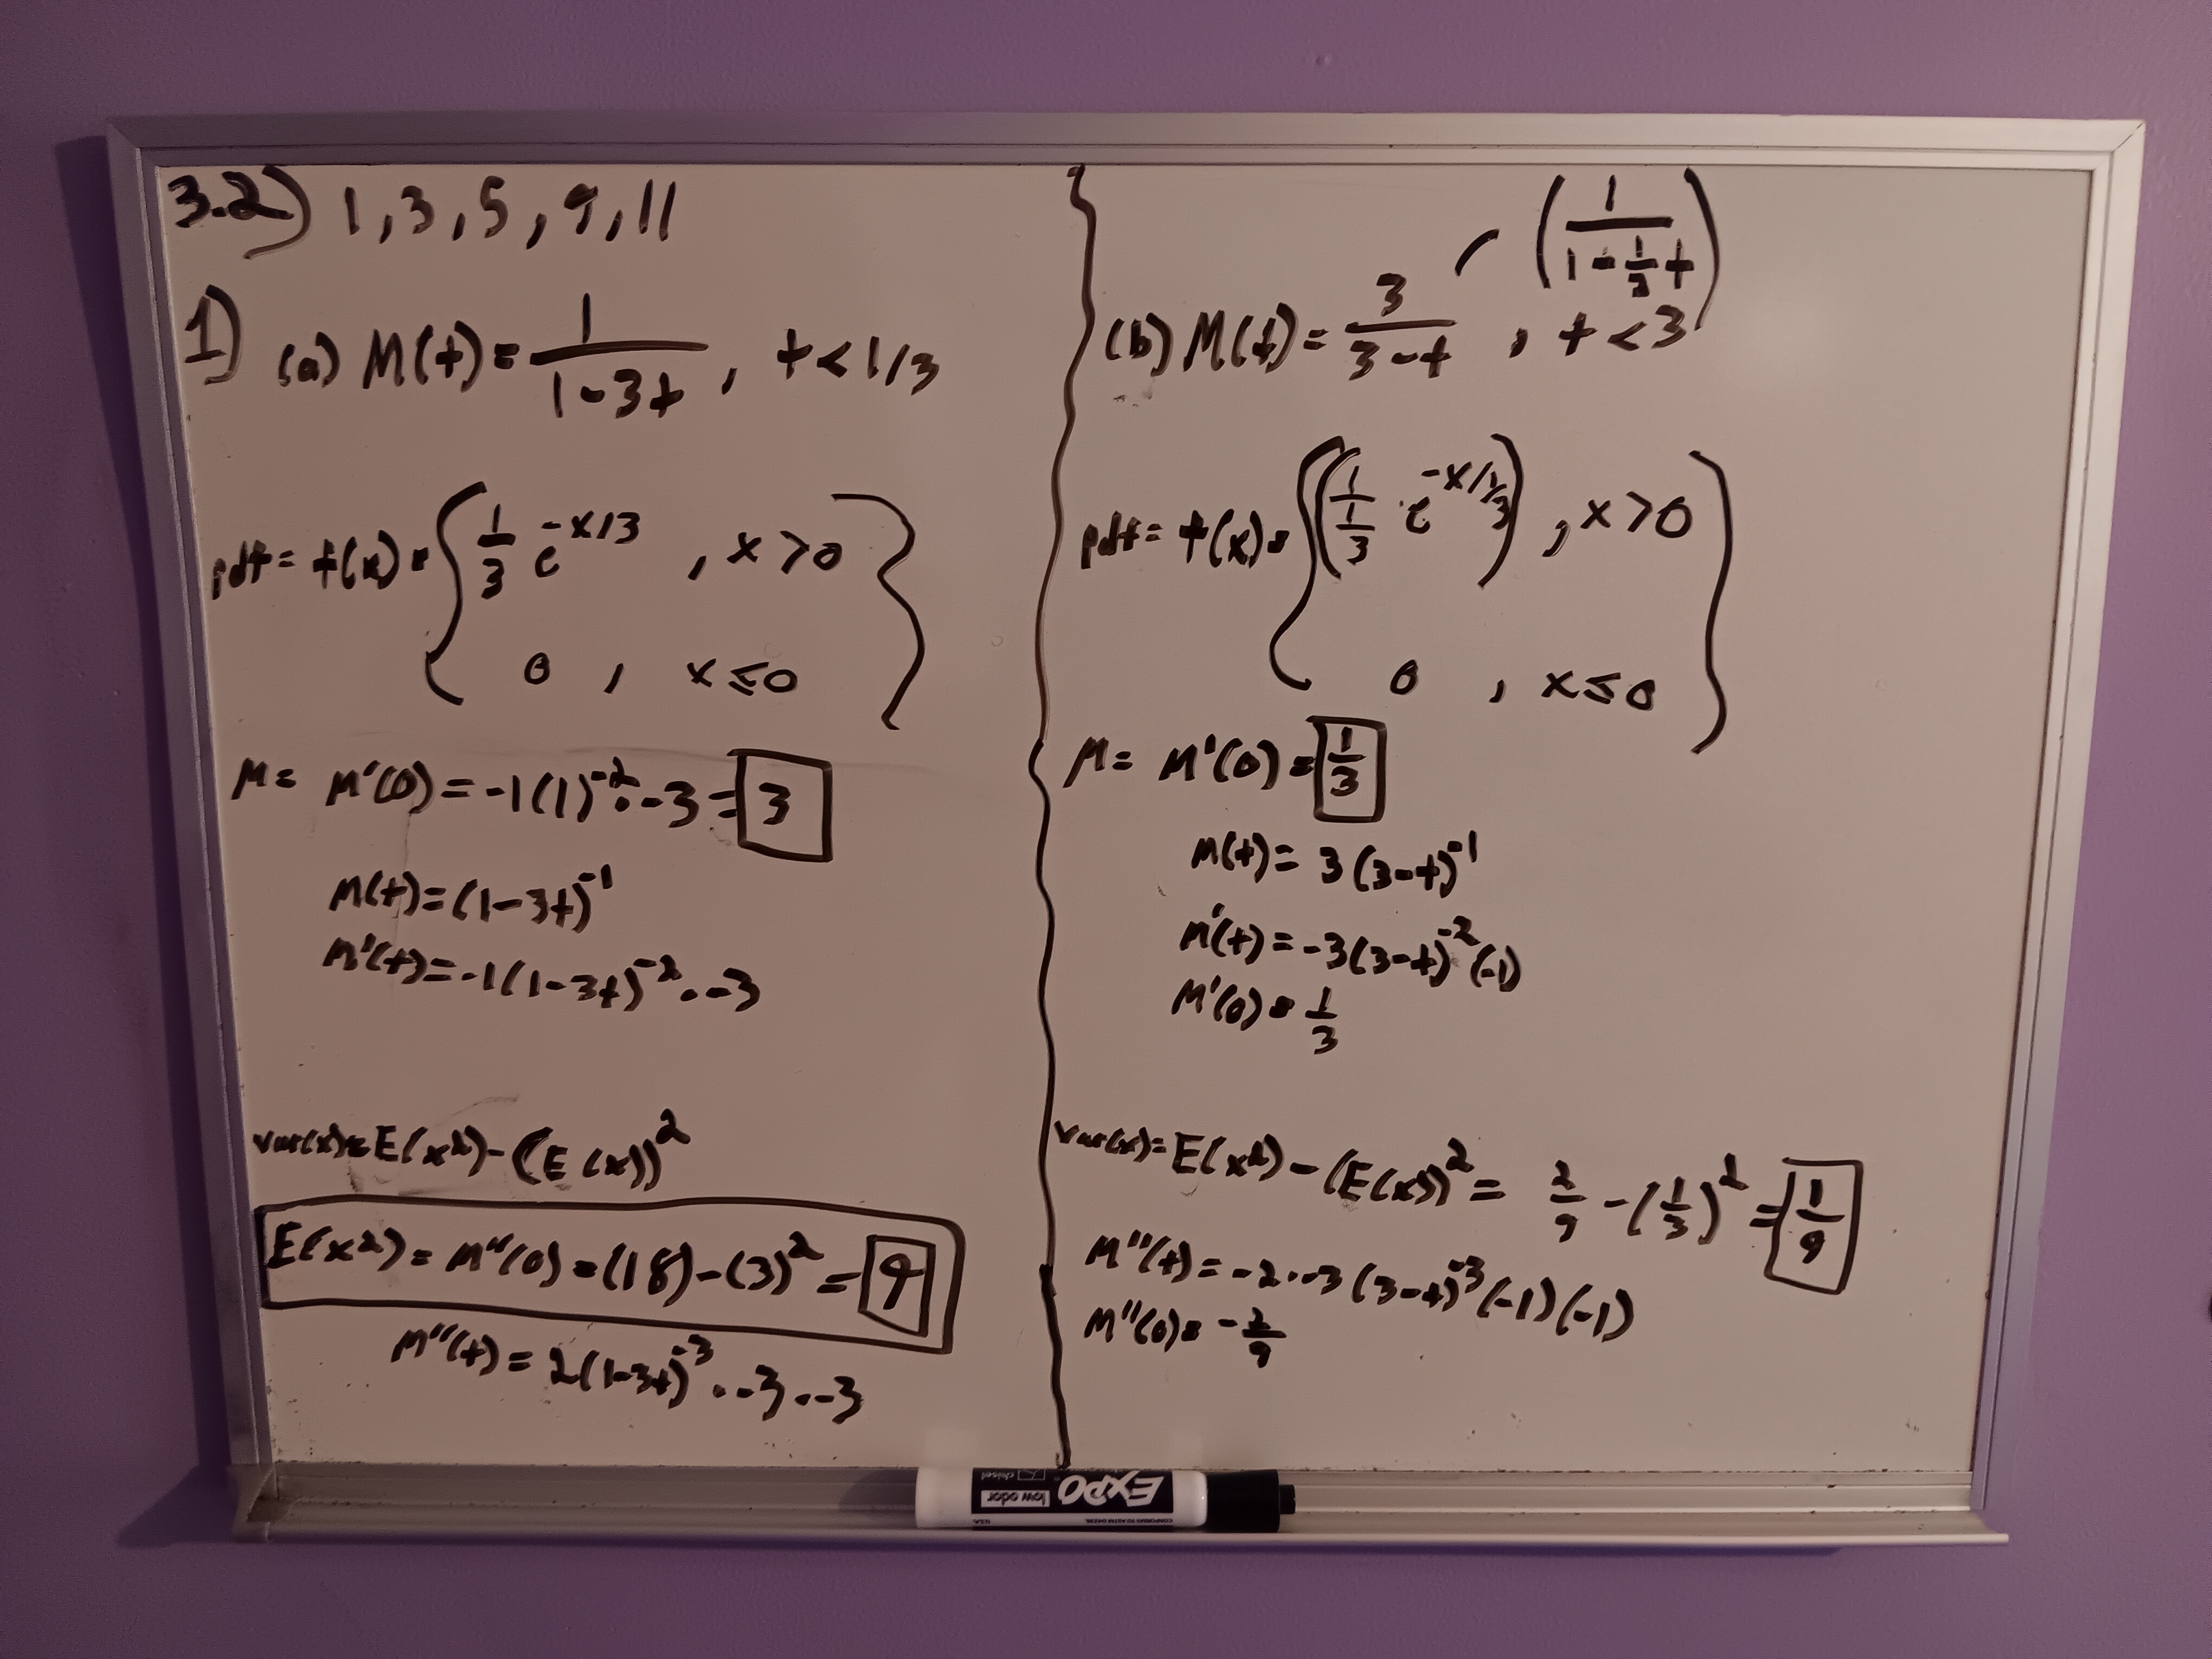 3.2) 1, 3, 5, 9, 11
1) (a) M(t) = 1/(1-3t) , t < 1/3
pdf = f(x) = { 1/3 e^(-x/3) , x > 0
0 , x ≤ 0 }
μ = M'(0) = -1(1)^-2 · -3 = 3
M(t) = (1-3t)^-1
M'(t) = -1(1-3t)^-2 · -3
var(x) = E(x^2) - (E(x))^2
E(x^2) = M''(0) = (18) - (3)^2 = 9
M''(t) = 2(1-3t)^-3 · -3 · -3
(1/(1 - 1/3 t))
(b) M(t) = 3/(3-t) , t < 3
pdf = f(x) = { (1/(1/3) e^(-x/(1/3))) , x > 0
0 , x ≤ 0 )
μ = M'(0) = 1/3
M(t) = 3(3-t)^-1
M'(t) = -3(3-t)^-2 (-1)
M'(0) = 1/3
var(x) = E(x^2) - (E(x))^2 = 2/9 - (1/3)^2 = 1/9
M''(t) = -2 · -3 (3-t)^-3 (-1)(-1)
M''(0) = -2/9
EXPO
low odor
chisel
U.S.A.
CONFORMS TO ASTM D4236